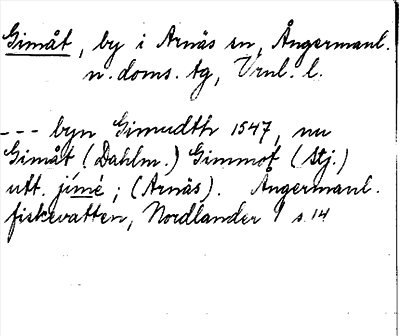 Gimåt, by i Arnäs sn, Ångermanl.
n. doms. tg, Vrnl. l.
--- byn Gimudth 1547, nu
Gimåt (Dahlm.) Gimmot (Stj.)
utt. jímé; (Arnäs). Ångermanl.
fiskevatten, Nordlander 1 s. 14